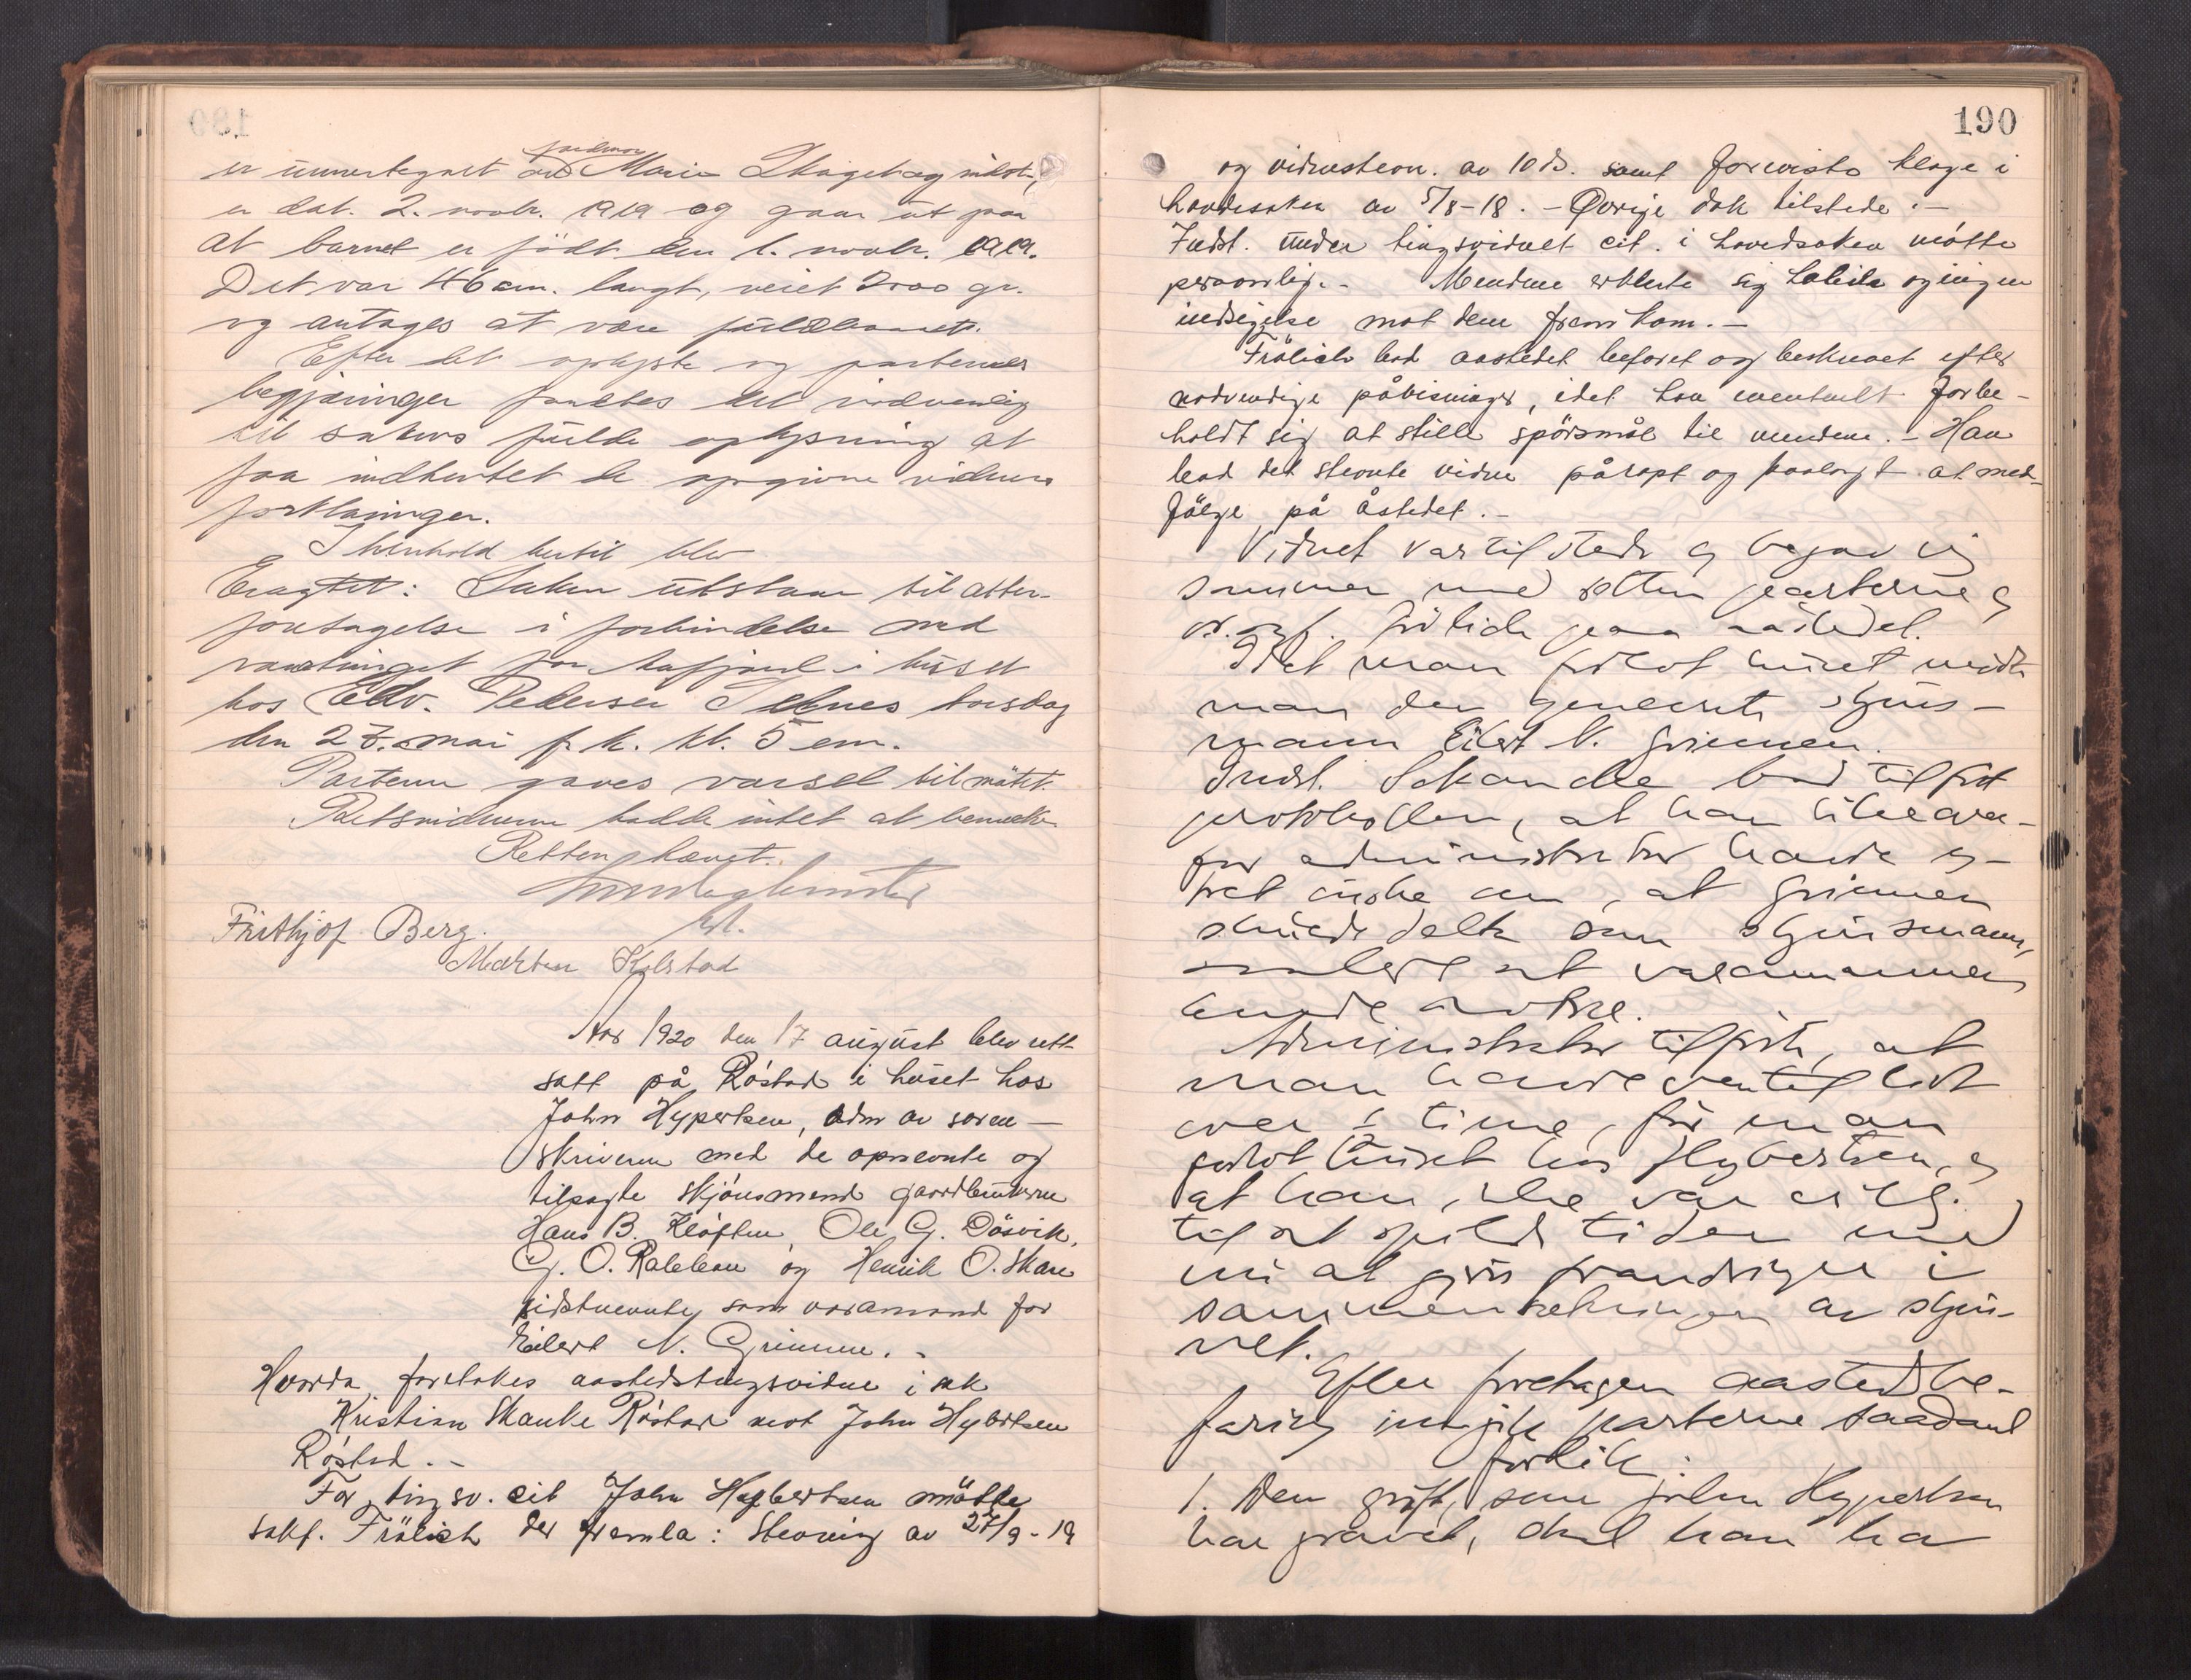 er undertegnet av jordmor Marie
er dat. 2. novbr. 1919 og gaar ut paa
at barnet er födt den 1. novbr. 1919.
Det var 46 cm. langt, veiet 2000 gr.
og antages at være fuldbaaret.
Efter det oplyste og parternes
begjæringer fandtes det nödvendig
til sakens fulde oplysning at
faa indhentet de opgivne vidners
forklaringer.
I henhold hertil blev
Eragtet: Saken utstaar til atter
foretagelse i forbindelse med
vaartinget for i huset
hos Edv. Pedersen Selnes torsdag
den 27. mai f. k. kl. 5 em.
Parterne gaves varsel til mötet.
Retsvidnerne hadde intet at bemerke.
Retten hævet.
Frithjof Berg.
Morten Kolstad
Aar 1920 den 17 august blev rett
satt på Röstad i huset hos
John Hypertsen, adm av soren-
skriveren med de opnevnte og
tilsagte skjönsmend gaardbrukerne
Hans B. Klöften, Ole G. Dösvik,
G. O. Rabben og Henrik O. Skare
sidstnevnte som varamand for
Eilert N. Grimmen. -
Hvorda foretakes aastedstingsvidne i sak
Kristian Skanke Röstad mot John Hybertsen
Röstad. -
For tingsv. cit John Hybertsen mötte
sakf. Frölich der fremla: Stevning av 27/9-19
190
og vidnestevn. av 10 ds. samt forevista klage i
hovedsaken av 5/8-18. - Övrige dok tilstede. -
Indst. under tingsvidnet cit. i hovedsaken mötte
personlig. - Mendene erklerte sig habile og ingen
indsigelse mot dem fremkom. -
Frölich bad aastedet befaret og beskrevet efter
nödvendige påvisninger, idet han eventuelt forbe-
holdt sig at stille spörsmål til mendene. - Han
bad det stevnte vidne påropt og paalagt at med-
fölge på åstedet. -
Vidnet var tilstede og begav sig
sammen med retten parterne og
o.r.sakf. Frölich paa aastedet.
Idet man forlot huset mödte
man den opnevnte skjöns-
mann Eilert N. Grimmen.
Indst. Skancke bad tilfört
protokollen, at han likeover-
for administrator havde ut-
talt önske om, at Grimmen
skulde delta som skjönsmann,
at varamannen
kunde avtræ.
Administrator tilförte, at
man havde ventet litt
over 1 time, för man
forlot huset hos Hybertsen, og
at han ikke var villig
til at spilde tiden med
nu at gjöre forandringer i
sammensetningen av skjön-
net.
Efter foretagen aastedsbe-
faring inngikk parterne saadant
forlik:
1. Den gröft, som John Hypertsen
har gravet, skal han ha